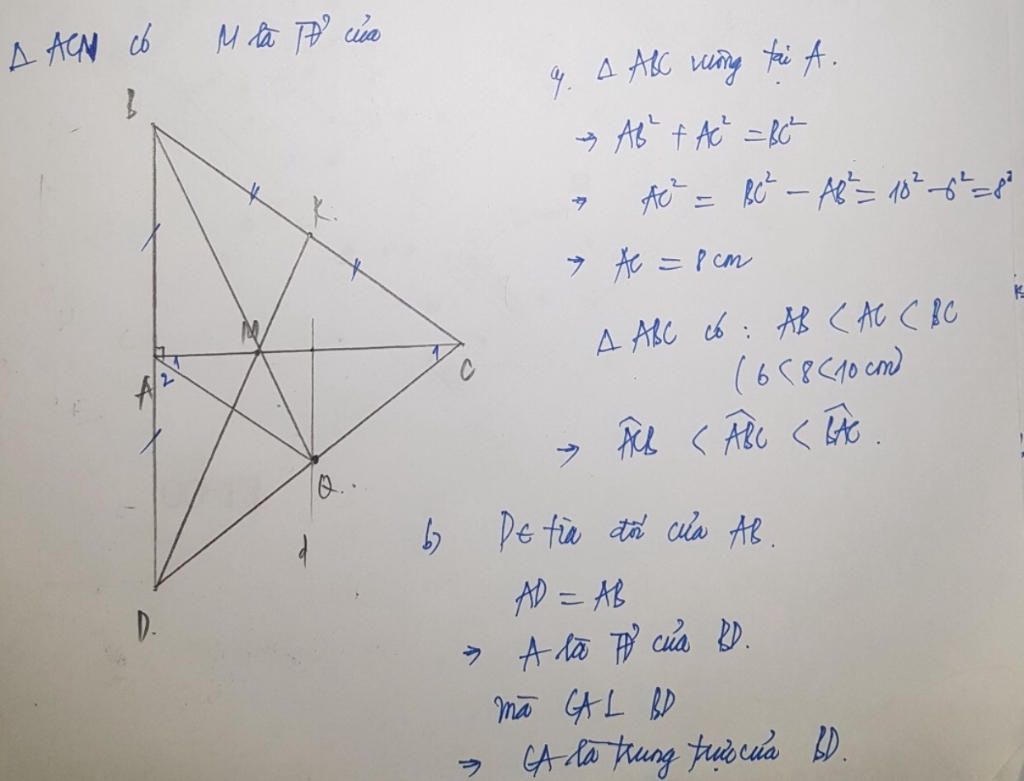 Δ ACM có M là TĐ của
B
K
M
A
1
2
1
C
Q
d
D
a, Δ ABC vuông tại A.
→ AB² + AC² = BC²
→ AC² = BC² − AB² = 10² − 6² = 8²
→ AC = 8 cm
Δ ABC có : AB < AC < BC
( 6 < 8 < 10 cm)
→ ACB < ABC < BAC .
b) D ∈ tia đối của AB.
AD = AB
→ A là TĐ của BD.
mà CA ⊥ BD
→ CA là trung trực của BD.